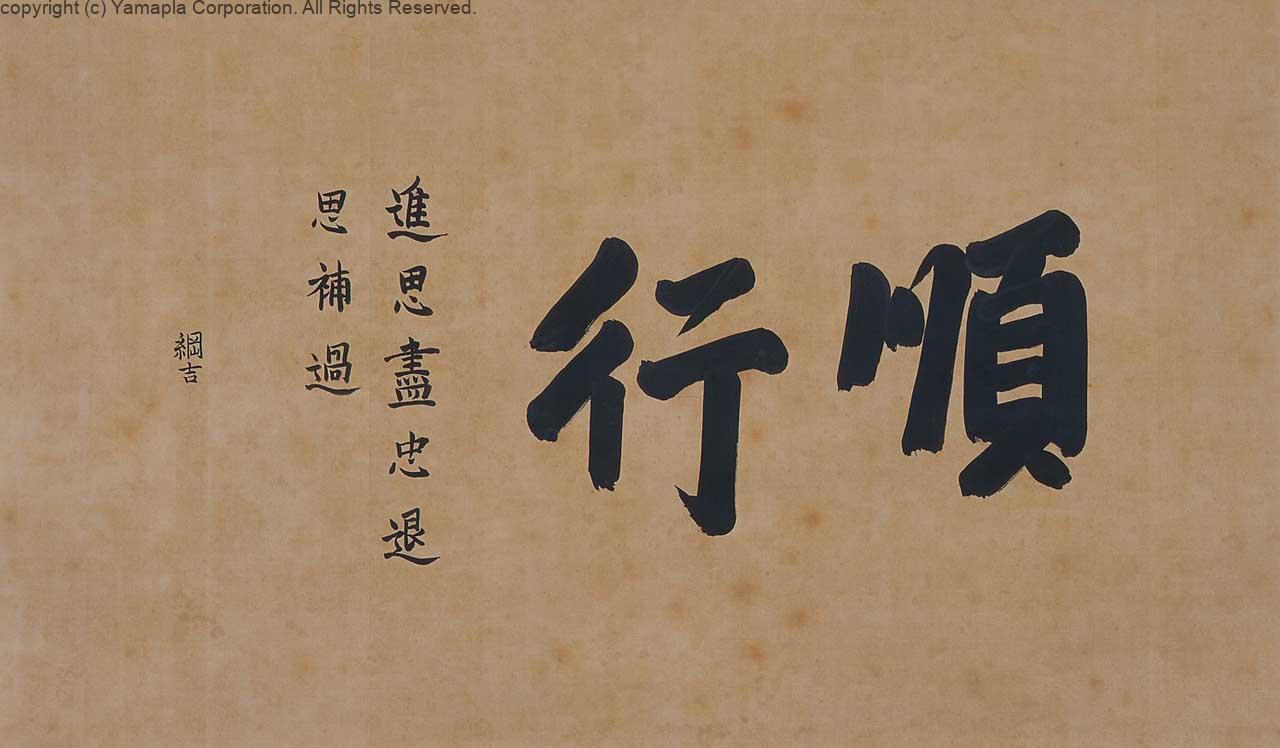 copyright (c) Yamapla Corporation. All Rights Reserved.
順行
進思盡忠退
思補過
綱吉